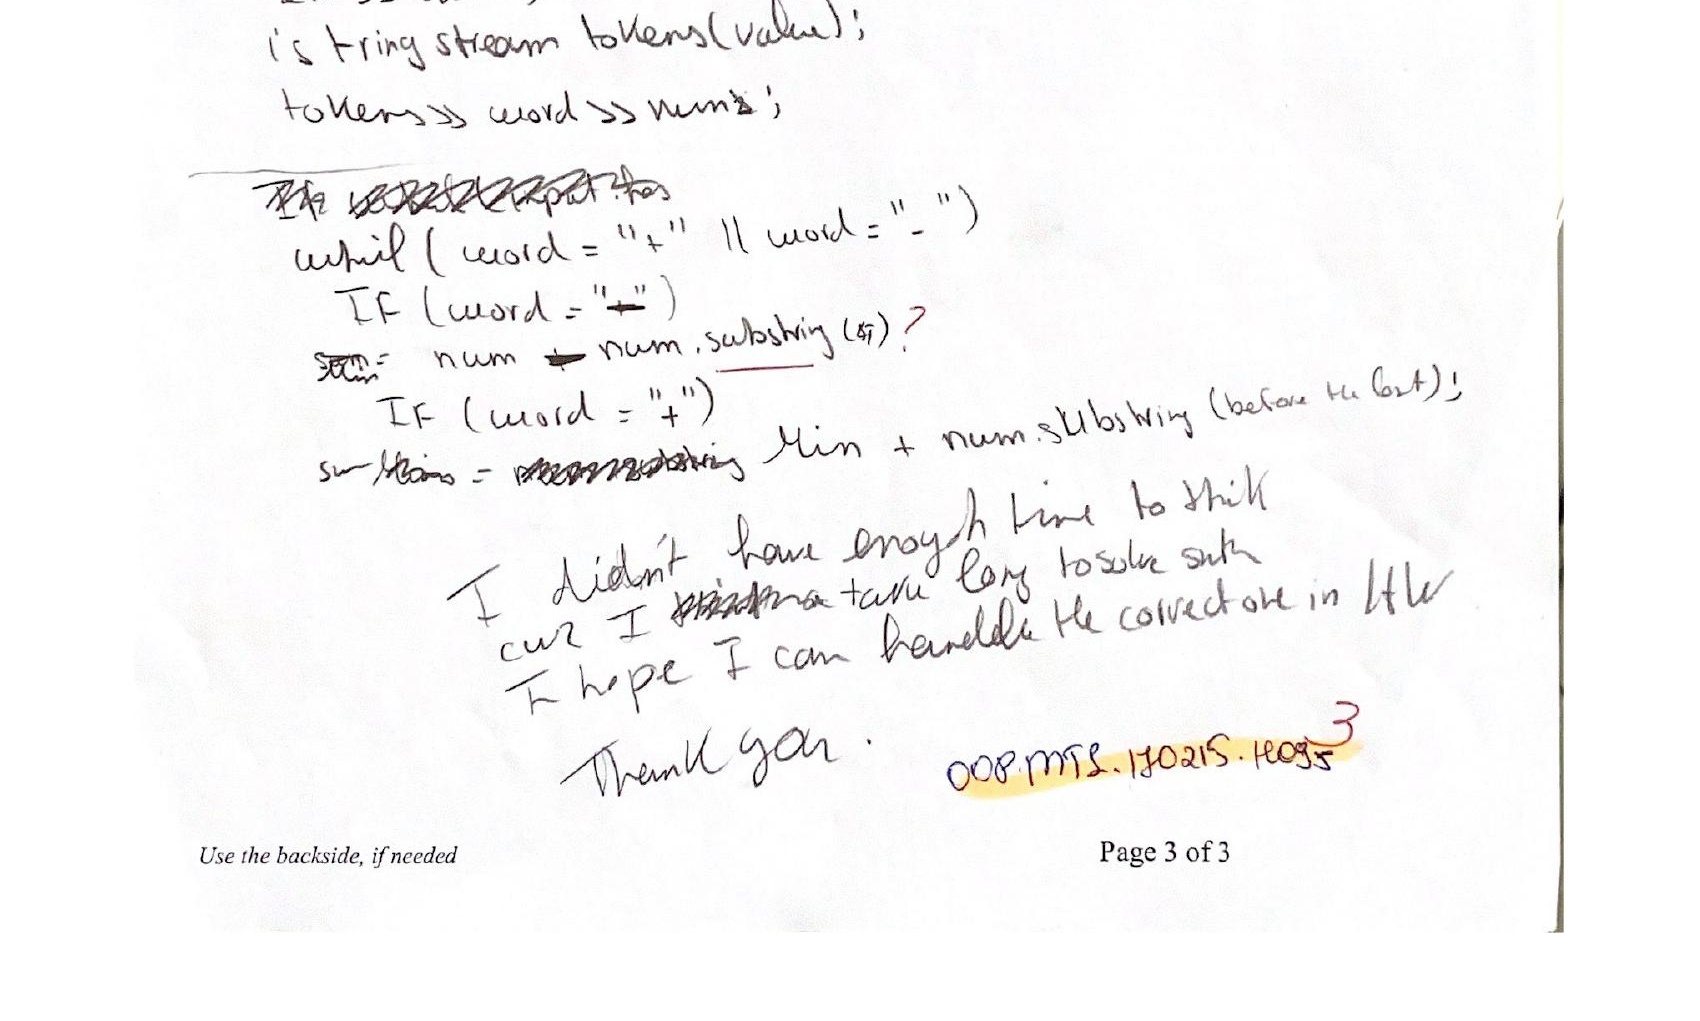 istring stream tokens(value);
tokens >> word >> num;
whil ( word = "+" || word = "-" )
IF (word = "-")
num - num.substring ( ) ?
IF (word = "+")
= Min + num.substring (before the last);
I didn't have enough time to thik
cuz I take long to solve suth
I hope I can handdle the corvect one in HW
Thank you.
OOP.MT2.170215.H095 3
Use the backside, if needed
Page 3 of 3